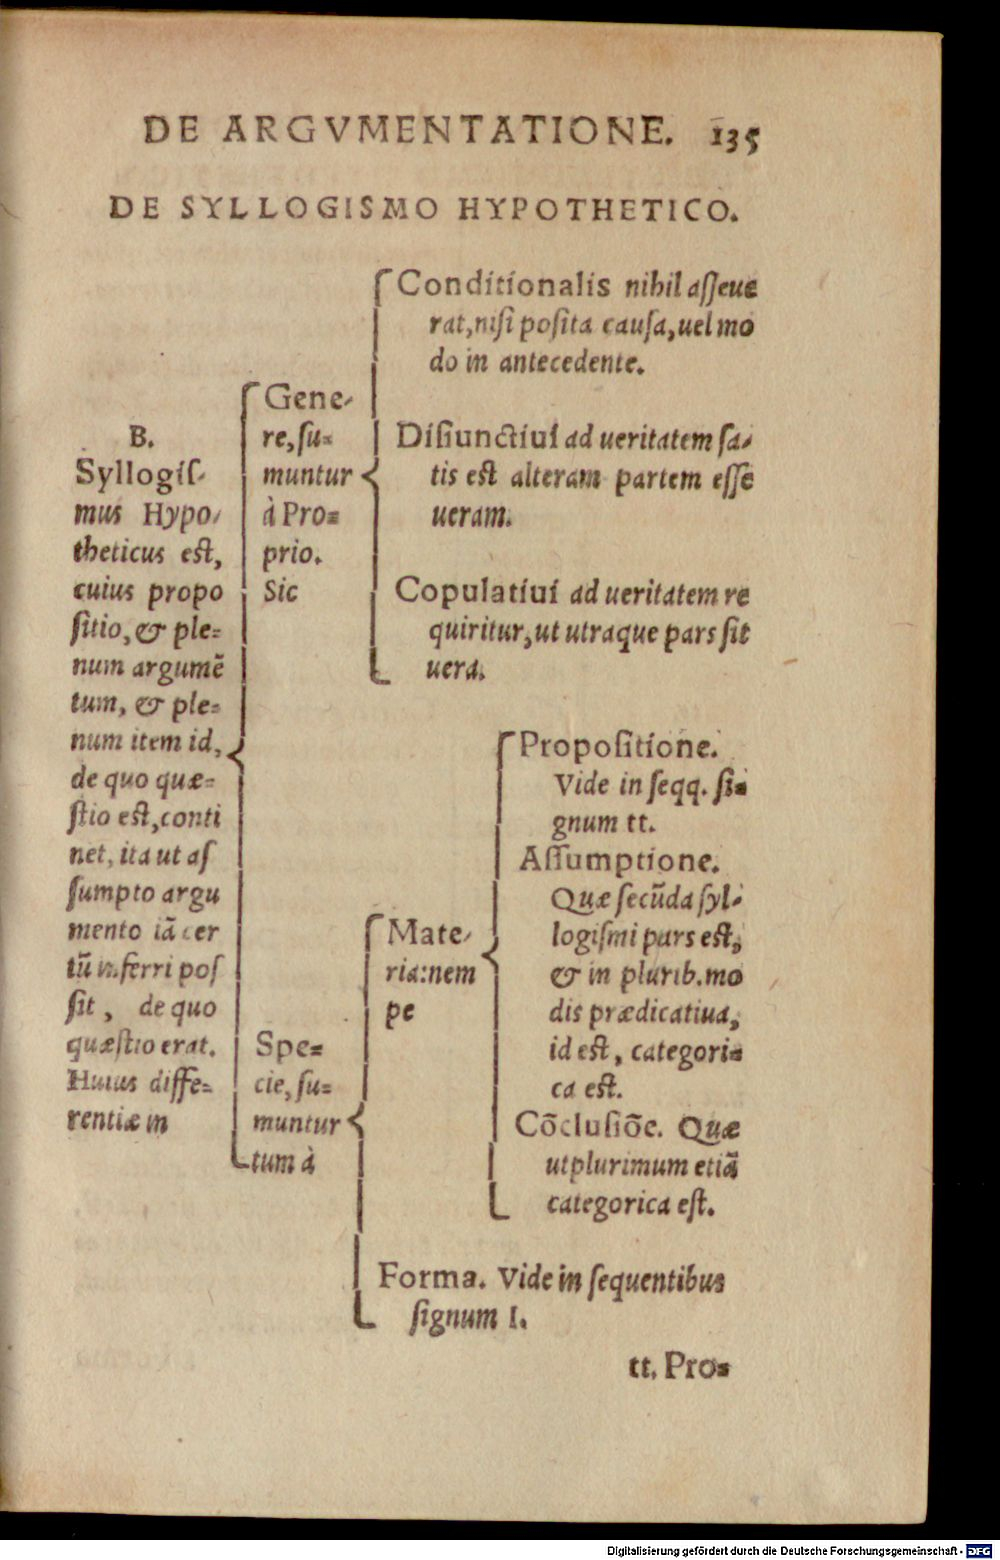 DE ARGVMENTATIONE. 135
DE SYLLOGISMO HYPOTHETICO.
B.
Syllogiſ-
mus Hypo-
theticus eſt,
cuius propo
ſitio, & ple=
num argumē
tum, & ple=
num item id,
de quo quæ=
ſtio eſt, conti
net, ita ut aſ
ſumpto argu
mento iā cer
tū inferri poſ
ſit, de quo
quæſtio erat.
Huius diffe=
rentiæ in
Gene-
re, ſu=
muntur
à Pro=
prio.
Sic
Conditionalis nihil aſſeue
rat, niſi poſita cauſa, uel mo
do in antecedente.
Diſiunctiui ad ueritatem ſa-
tis eſt alteram partem eſſe
ueram.
Copulatiui ad ueritatem re
quiritur, ut utraque pars ſit
uera.
Spe=
cie, ſu=
muntur
tum à
Mate-
ria: nem
pe
Propoſitione.
Vide in ſeqq. ſi=
gnum tt.
Aſſumptione.
Quæ ſecūda ſyl-
logiſmi pars eſt,
& in plurib. mo
dis prædicatiua,
id eſt, categori=
ca eſt.
Cōcluſiōe. Quæ
utplurimum etiā
categorica eſt.
Forma. Vide in ſequentibus
ſignum I.
tt. Pro=
Digitalisierung gefördert durch die Deutsche Forschungsgemeinschaft - DFG